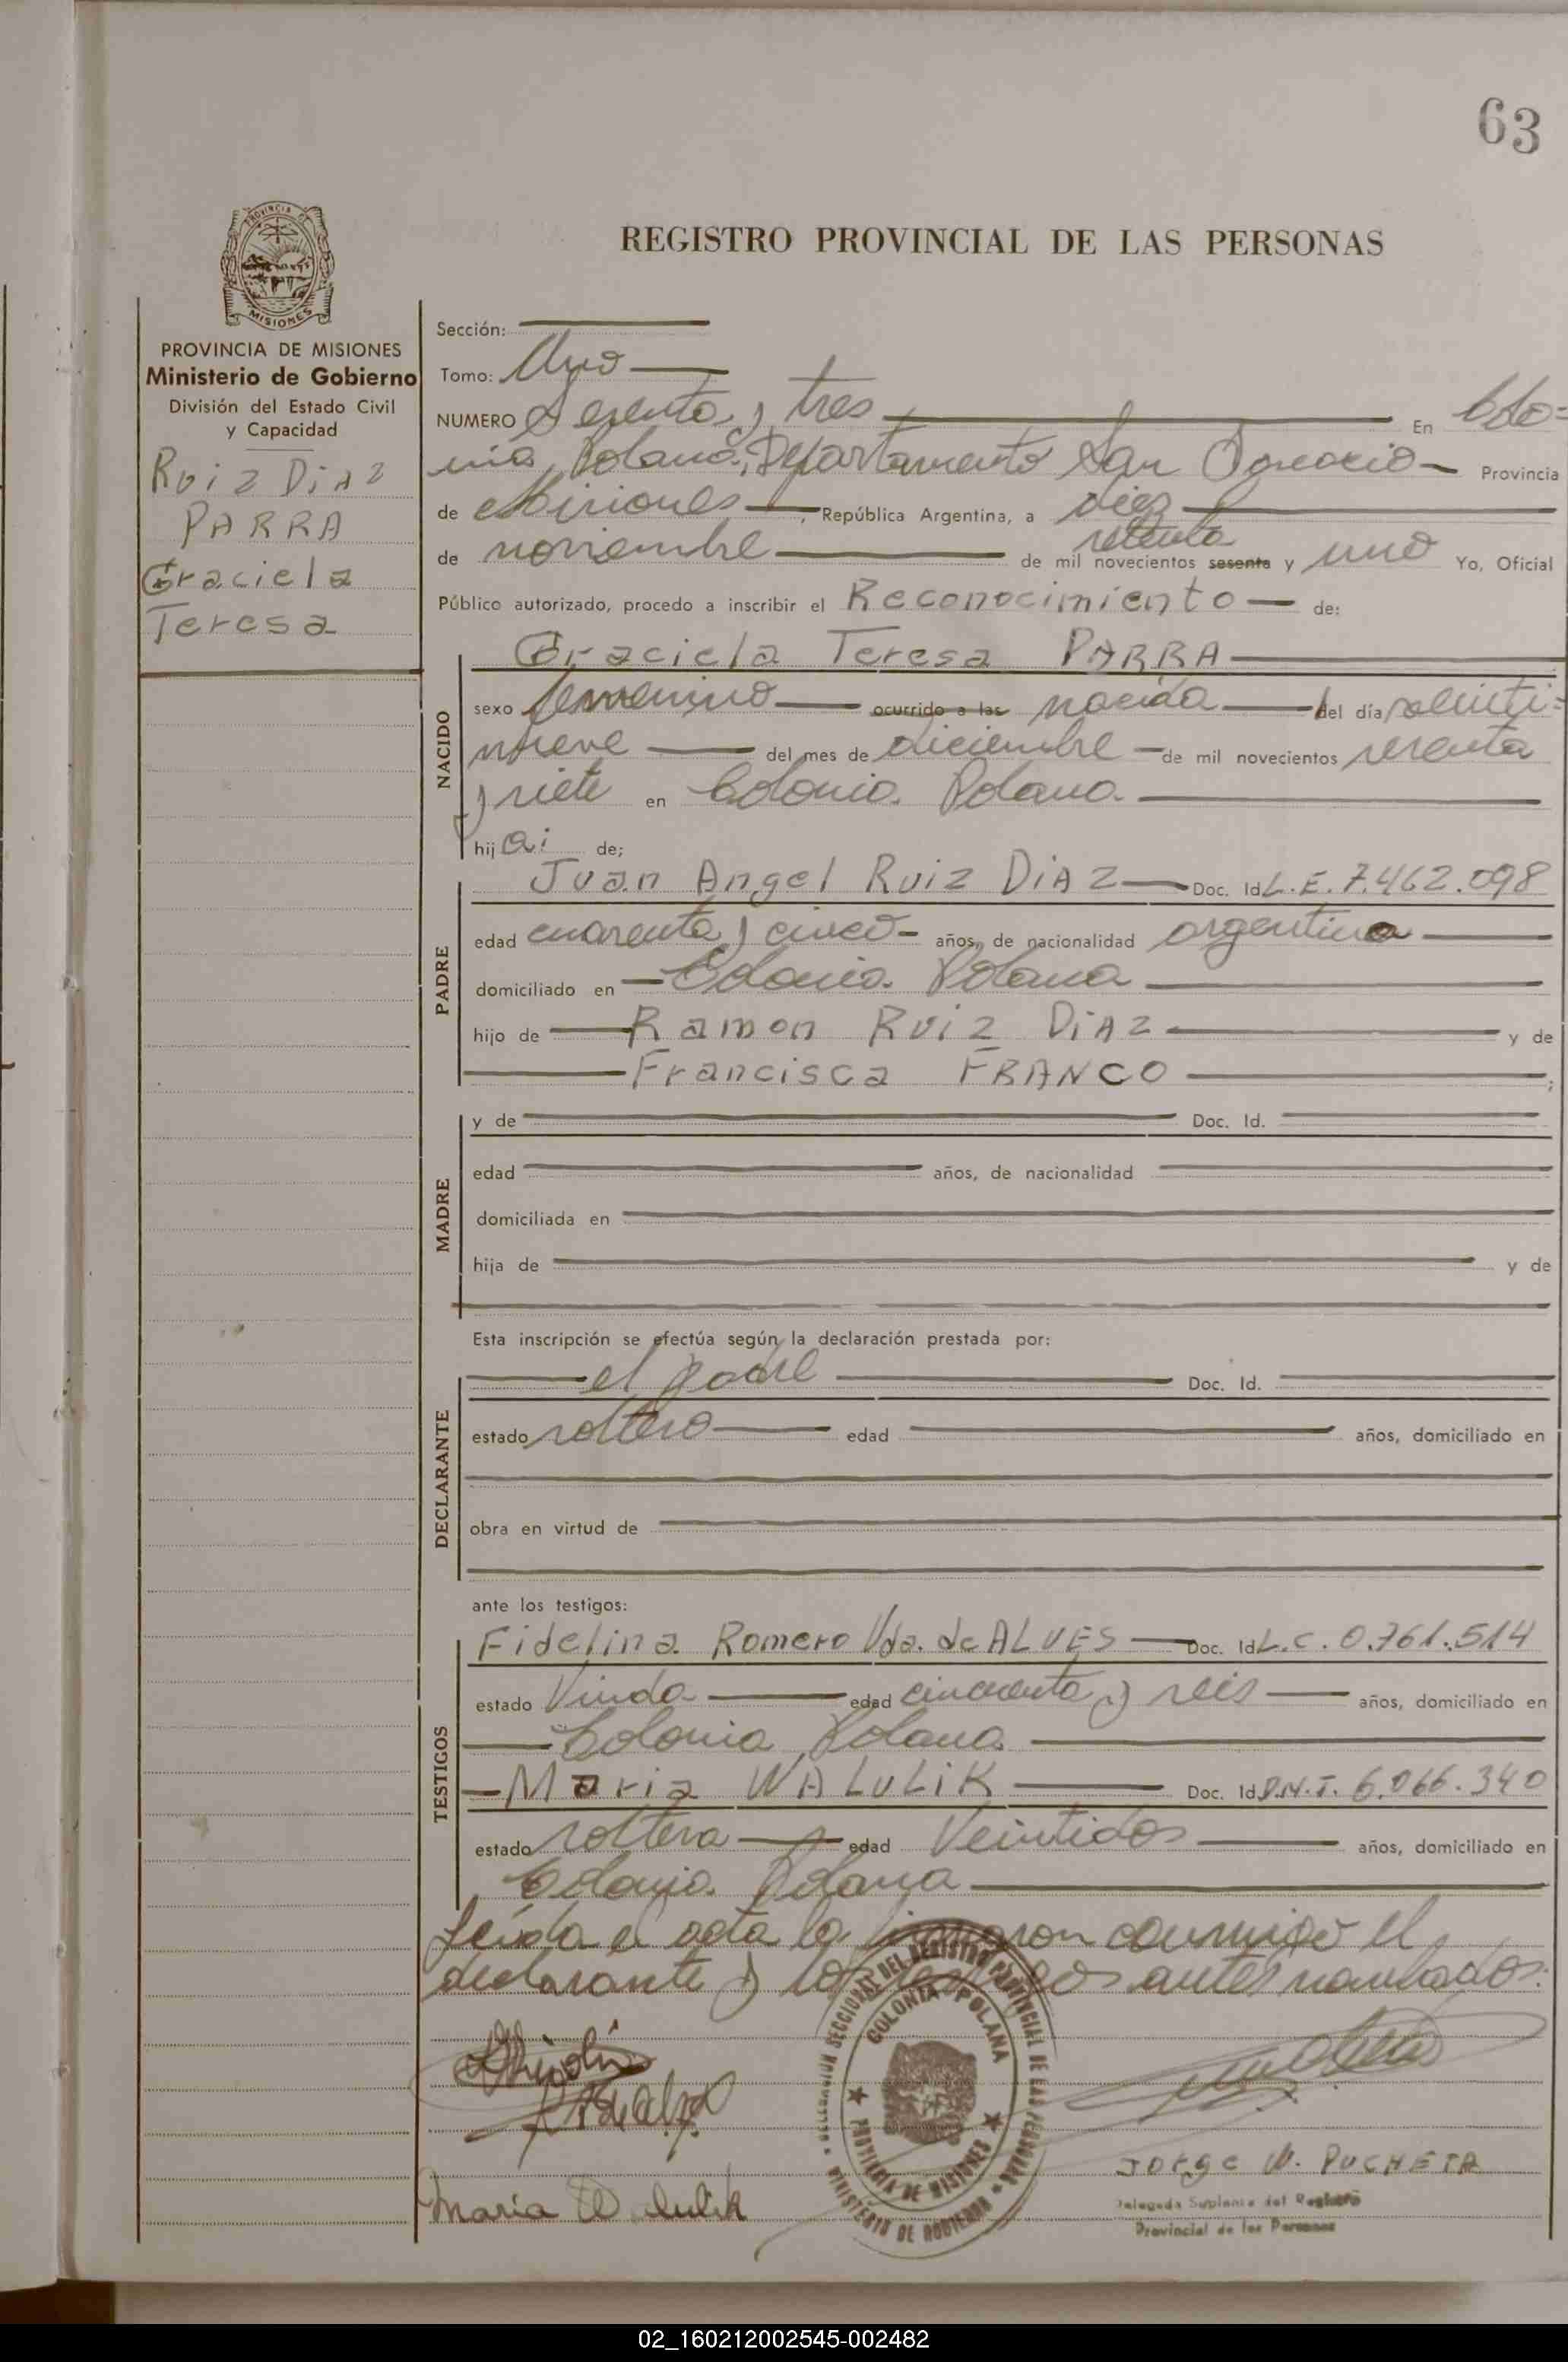 63
PROVINCIA DE
MISIONES
REGISTRO PROVINCIAL DE LAS PERSONAS
PROVINCIA DE MISIONES
Ministerio de Gobierno
División del Estado Civil
y Capacidad
Ruiz DiAz
PARRA
Graciela
Teresa
Sección:
Tomo: Uno
NUMERO Sesenta y tres En Colo=
nia Polana, Departamento San Ignacio Provincia
de Misiones, República Argentina, a diez
setenta
de noviembre de mil novecientos sesenta y uno Yo, Oficial
Público autorizado, procedo a inscribir el Reconocimiento de:
Graciela Teresa PARRA
NACIDO
sexo femenino ocurrido a las nacida del día veinti=
nueve del mes de diciembre de mil novecientos sesenta
y siete en Colonia Polana
hija de;
PADRE
Juan Angel Ruiz DiAz Doc. Id L.E. 7.462.098
edad cuarenta y cinco años, de nacionalidad argentina
domiciliado en Colonia Polana
hijo de Ramon Ruiz DiAz y de
Francisca FRANCO ;
MADRE
y de Doc. Id.
edad años, de nacionalidad
domiciliada en
hija de y de
Esta inscripción se efectúa según la declaración prestada por:
DECLARANTE
el padre Doc. Id.
estado soltero edad años, domiciliado en
obra en virtud de
ante los testigos:
TESTIGOS
Fidelina Romero Vda. de ALVES Doc. Id L.C. 0.761.514
estado Viuda edad cincuenta y seis años, domiciliado en
Colonia Polana
Maria WALULIK Doc. Id D.N.I. 6.066.340
estado soltera edad Veintidos años, domiciliado en
Colonia Polana
Leída el acta la firmaron conmigo el
declarante y los testigos antes nombrados.
SECCIONAL DEL REGISTRO PROVINCIAL DE LAS PERSONAS
MINISTERIO DE GOBIERNO
COLONIA POLANA
PROVINCIA DE MISIONES
Maria Walulik
Jorge N. PUCHETA
Delegado Suplente del Registro
Provincial de las Personas
02_160212002545-002482